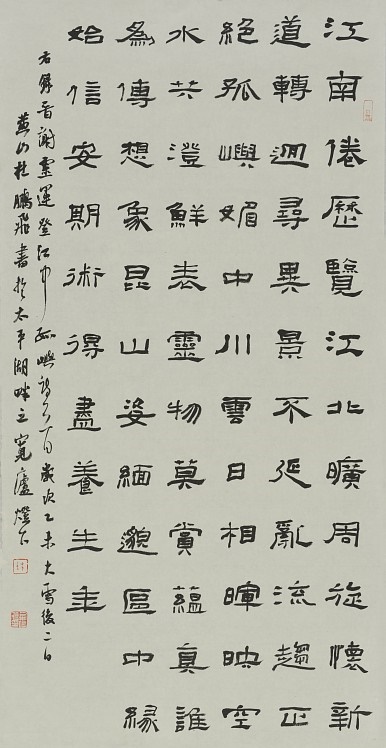 江南倦歷覽江北曠周旋懷新
道轉迥尋異景不延亂流趨正
絕孤嶼媚中川雲日相暉映空
水共澄鮮表靈物莫賞蘊真誰
為傳想象昆山姿緬邈區中緣
始信安期術得盡養生年
右錄晉謝靈運登江中孤嶼詩一首歲次乙未大雪後二日
燕山杜鵬飛書於太平湖畔之寬廬燈下